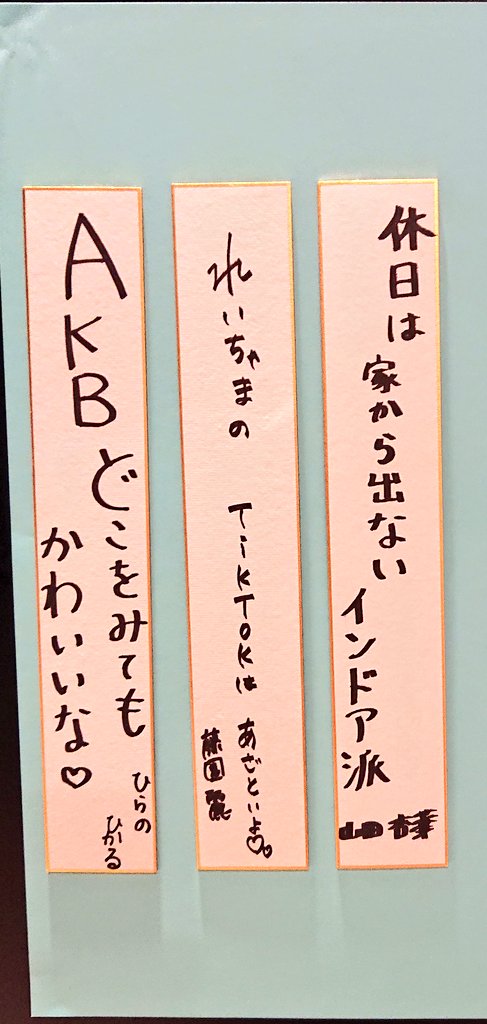 休日は
家から出ない
インドア派
山田杏華
れいちゃまの TikTokは あざといよ♡♡
藤園麗
AKB
どこをみても
かわいいな♡
ひらの
ひかる